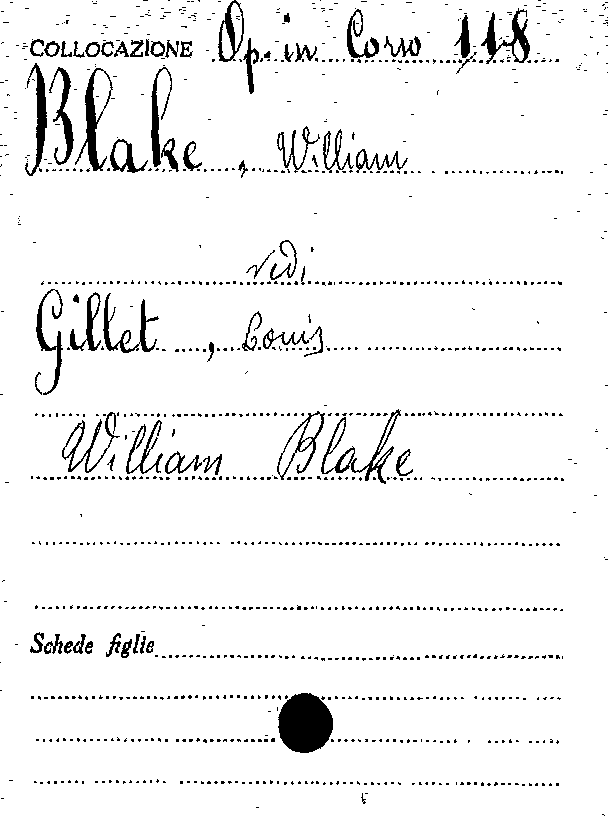 COLLOCAZIONE Op. in Corso 118
Blake, William
vedi
Gillet, Louis
William Blake
Schede figlie